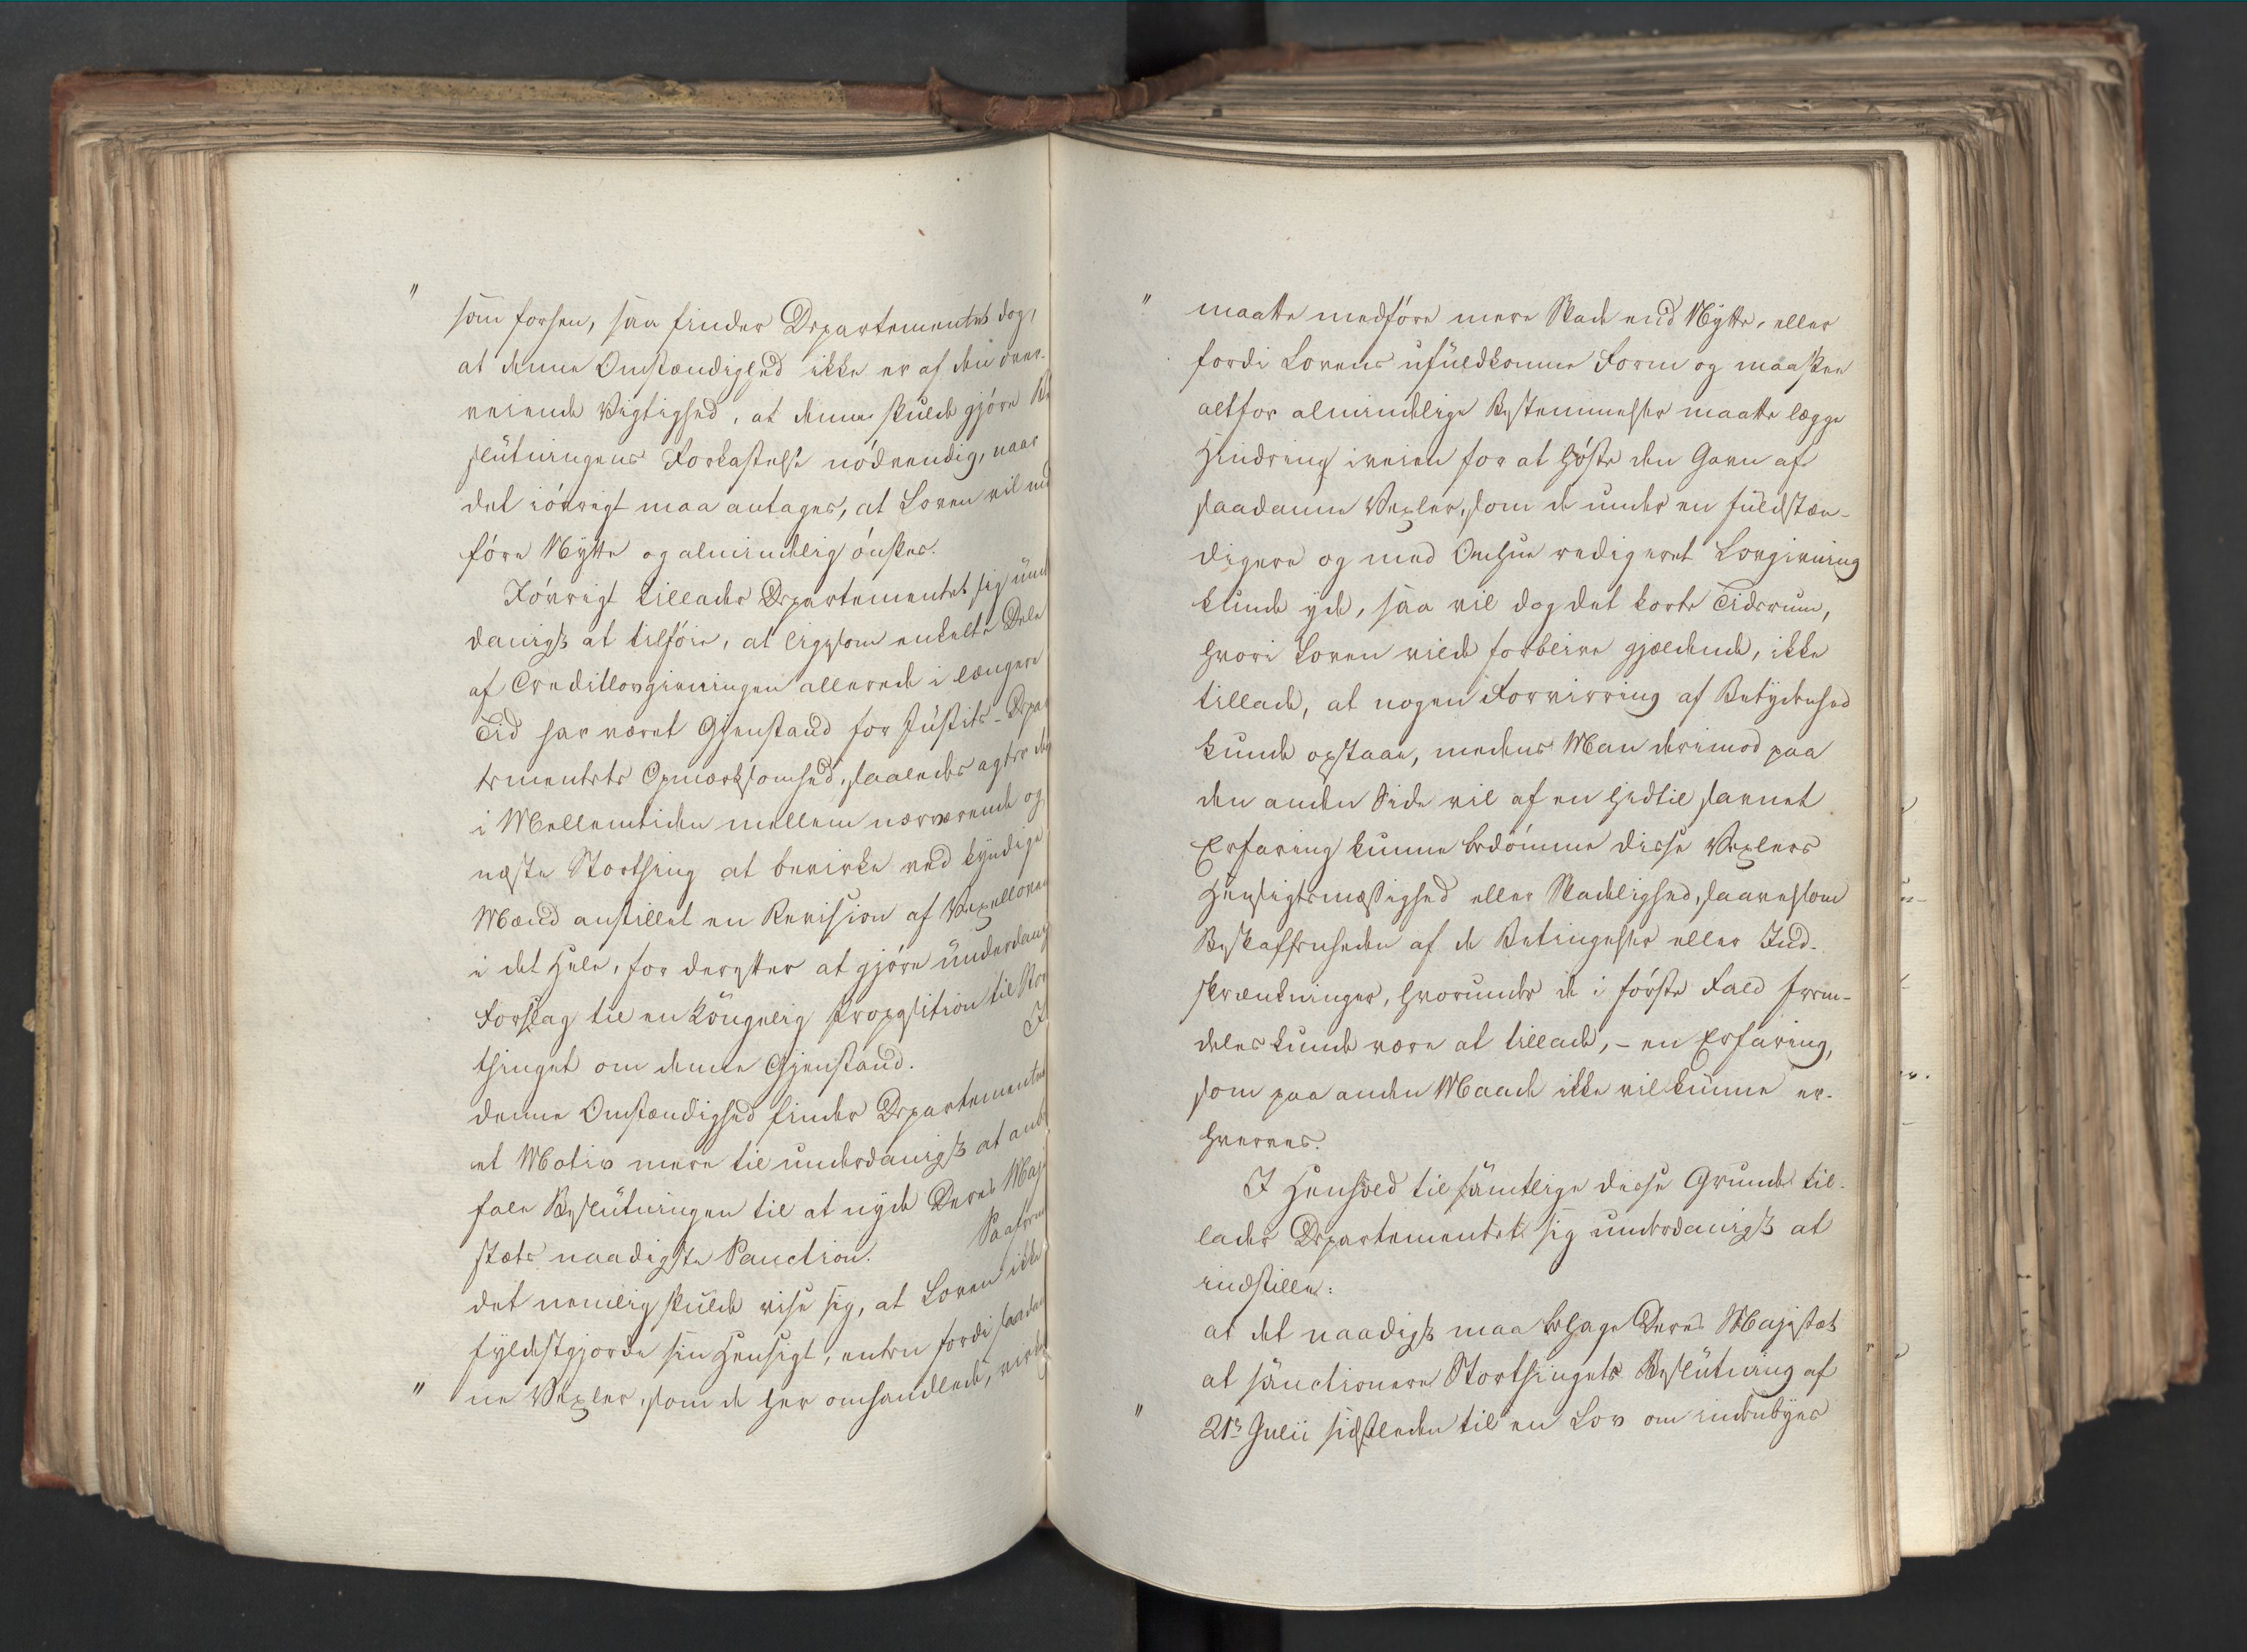 "
som forhen, saa finder Departementet dog,
at denne Omstændighed ikke er af den over-
veiende Vigtighed, at denne skulde gjøre Be
slutningens Forkastelse nödvendig, naar
det iövrigt maa antages, at Loven vil med
före Nytte og almindelig önskes.
Iövrigt tillader Departementet sig und
danigst at tilföie, at ligesom enkelte Dele
af Creditlovgivningen allerede i længere
Tid har været Gjenstand for Justits-Depar
tementets Opmærksomhed, saaledes agter det
i Mellemtiden mellem nærværende og
næste Storthing at bevirke ved kyndige
Mænd anstillet en Revision af Vexelloven
i det Hele, for derefter at gjöre underdanig
Forslag til en Kongelig Proposition til Stor
thinget om denne Gjenstand. I
denne Omstændighed finder Departementet
et Motiv mere til underdanigst at anbe
fale Beslutningen til at nyde Deres Maje
stæts naadigste Sanction. Saafremt
det nemlig skulde vise sig, at Loven ikke
fyldestgjorde sin Hensigt, enten fordi saadan
" ne Vexler, som de her omhandlede, virke
" maatte medføre mere Skade end Nytte, eller
fordi Lovens ufuldkomne Form og maaskee
altfor almindelige Bestemmelser maatte lægge
Hindring iveien for at høste den Gavn af
saadanne Vexler, som de under en fuldstæn-
digere og med Omhue redigeret Lovgivning
kunde yde, saa vil dog det korte Tidsrum,
hvori Loven vilde forblive gjældende, ikke
tillade, at nogen Forvirring af Betydenhed
kunde opstaae, medens Man derimod paa
den anden Side vil af en hidtil savnet
Erfaring kunne bedömme disse Vexlers
Hensigtsmæssighed eller Skadelighed, saavelsom
Beskaffenheden af de Betingelser eller Ind-
skrænkninger, hvorunder de i förste Fald frem-
deles kunde være at tillade, - en Erfaring,
som paa anden Maade ikke vil kunne er-
hverves.
I Henhold til samtlige disse Grunde til-
lader Departementet sig underdanigst at
indstille:
at det naadigst maa behage Deres Majestæt
at sanctionere Storthingets Beslutning af
" 21de Julii sidstleden til en Lov om indenbyes